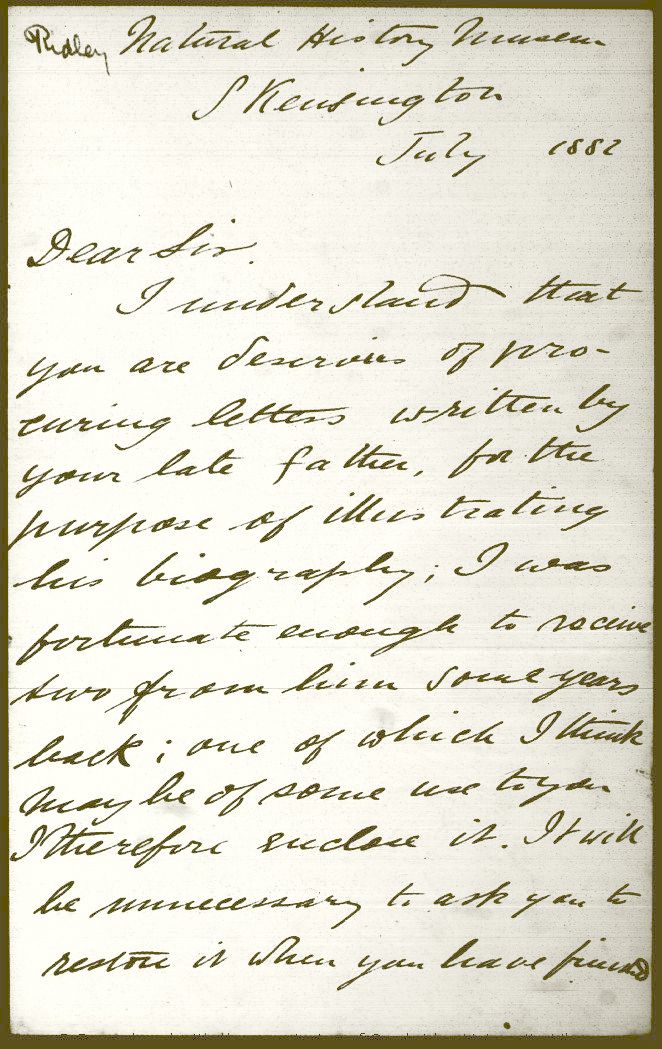 Ridley Natural History Museum
S Kensington
July 1882
Dear Sir.
I understand that
you are desirous of pro-
curing letters written by
your late father, for the
purpose of illustrating
his biography; I was
fortunate enough to receive
two from him some years
back; one of which I think
may be of some use to you
I therefore enclose it. It will
be unnecessary to ask you to
restore it when you have finished